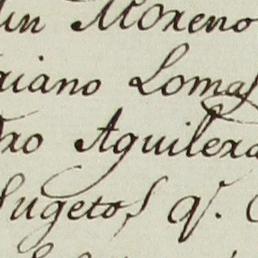 in Moreno
riano Lomas
ro Aguilera
Sugetos q.